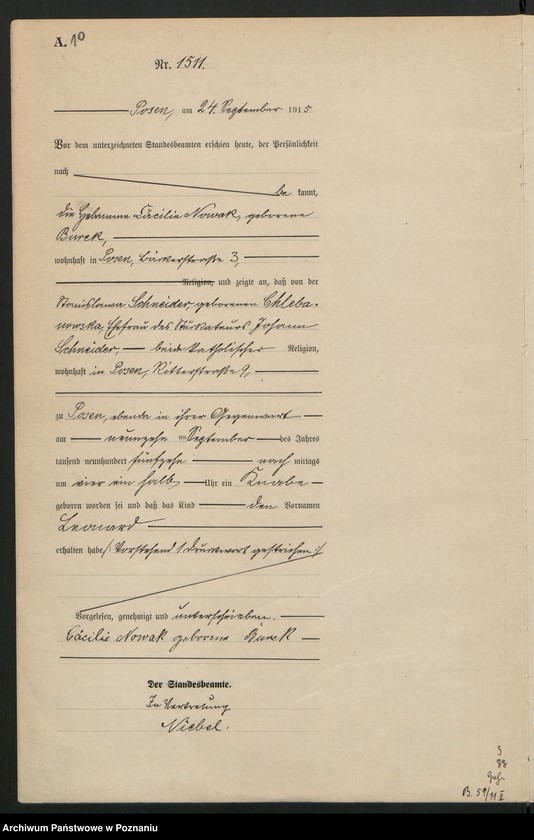 A. 10
Nr. 1511.
Posen, am 24. September 1915
Vor dem unterzeichneten Standesbeamten erschien heute, der Persönlichkeit
nach
be kannt,
die Hebamme Cäcilie Nowak, geborene
Burek,
wohnhaft in Posen, Bäckerstraße 3,
Religion, und zeigte an, daß von der
Stanislawa Schneider, geborenen Chleba-
nowska, Ehefrau des Stuckateurs Johann
Schneider, beide katholischer Religion,
wohnhaft in Posen, Ritterstraße 9,
zu Posen, ebenda in ihrer Gegenwart
am neunzehn ten September des Jahres
tausend neunhundert fünfzehn nach mittags
um vier ein halb Uhr ein Knabe
geboren worden sei und daß das Kind den Vornamen
Leonard
erhalten habe /: Vorstehend 1 Druckwort gestrichen :/
Vorgelesen, genehmigt und unterschrieben.
Cäcilie Nowak geborene Burek
Der Standesbeamte.
In Vertretung
Niebel.
3
88
B. 59/11 II
Archiwum Państwowe w Poznaniu